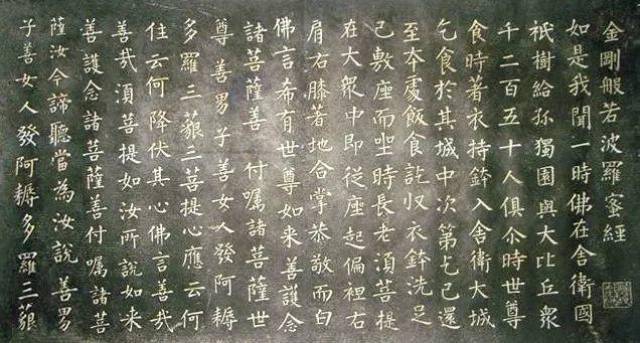 金剛般若波羅蜜經
如是我聞一時佛在舍衛國
祇樹給孤獨園與大比丘眾
千二百五十人俱尒時世尊
食時著衣持鉢入舍衛大城
乞食於其城中次第乞已還
至本處飯食訖収衣鉢洗足
已敷座而坐時長老須菩提
在大眾中即從座起偏袒右
肩右膝著地合掌恭敬而白
佛言希有世尊如来善護念
諸菩薩善付囑諸菩薩世
尊善男子善女人發阿耨
多羅三藐三菩提心應云何
住云何降伏其心佛言善哉
善哉須菩提如汝所說如来
善護念諸菩薩善付囑諸菩
薩汝今諦聽當為汝說善男
子善女人發阿耨多羅三藐